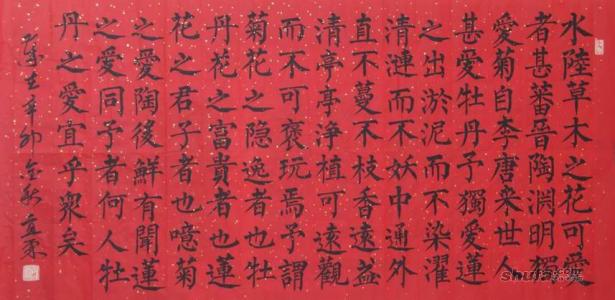 水陸草木之花可愛
者甚蕃晉陶淵明獨
愛菊自李唐来世人
甚愛牡丹予獨愛蓮
之出淤泥而不染濯
清漣而不妖中通外
直不蔓不枝香遠益
清亭亭淨植可遠觀
而不可褻玩焉予謂
菊花之隐逸者也牡
丹花之富貴者也蓮
花之君子者也噫菊
之愛陶後鮮有聞蓮
之愛同予者何人牡
丹之愛宜乎衆矣
歲在辛卯金秋